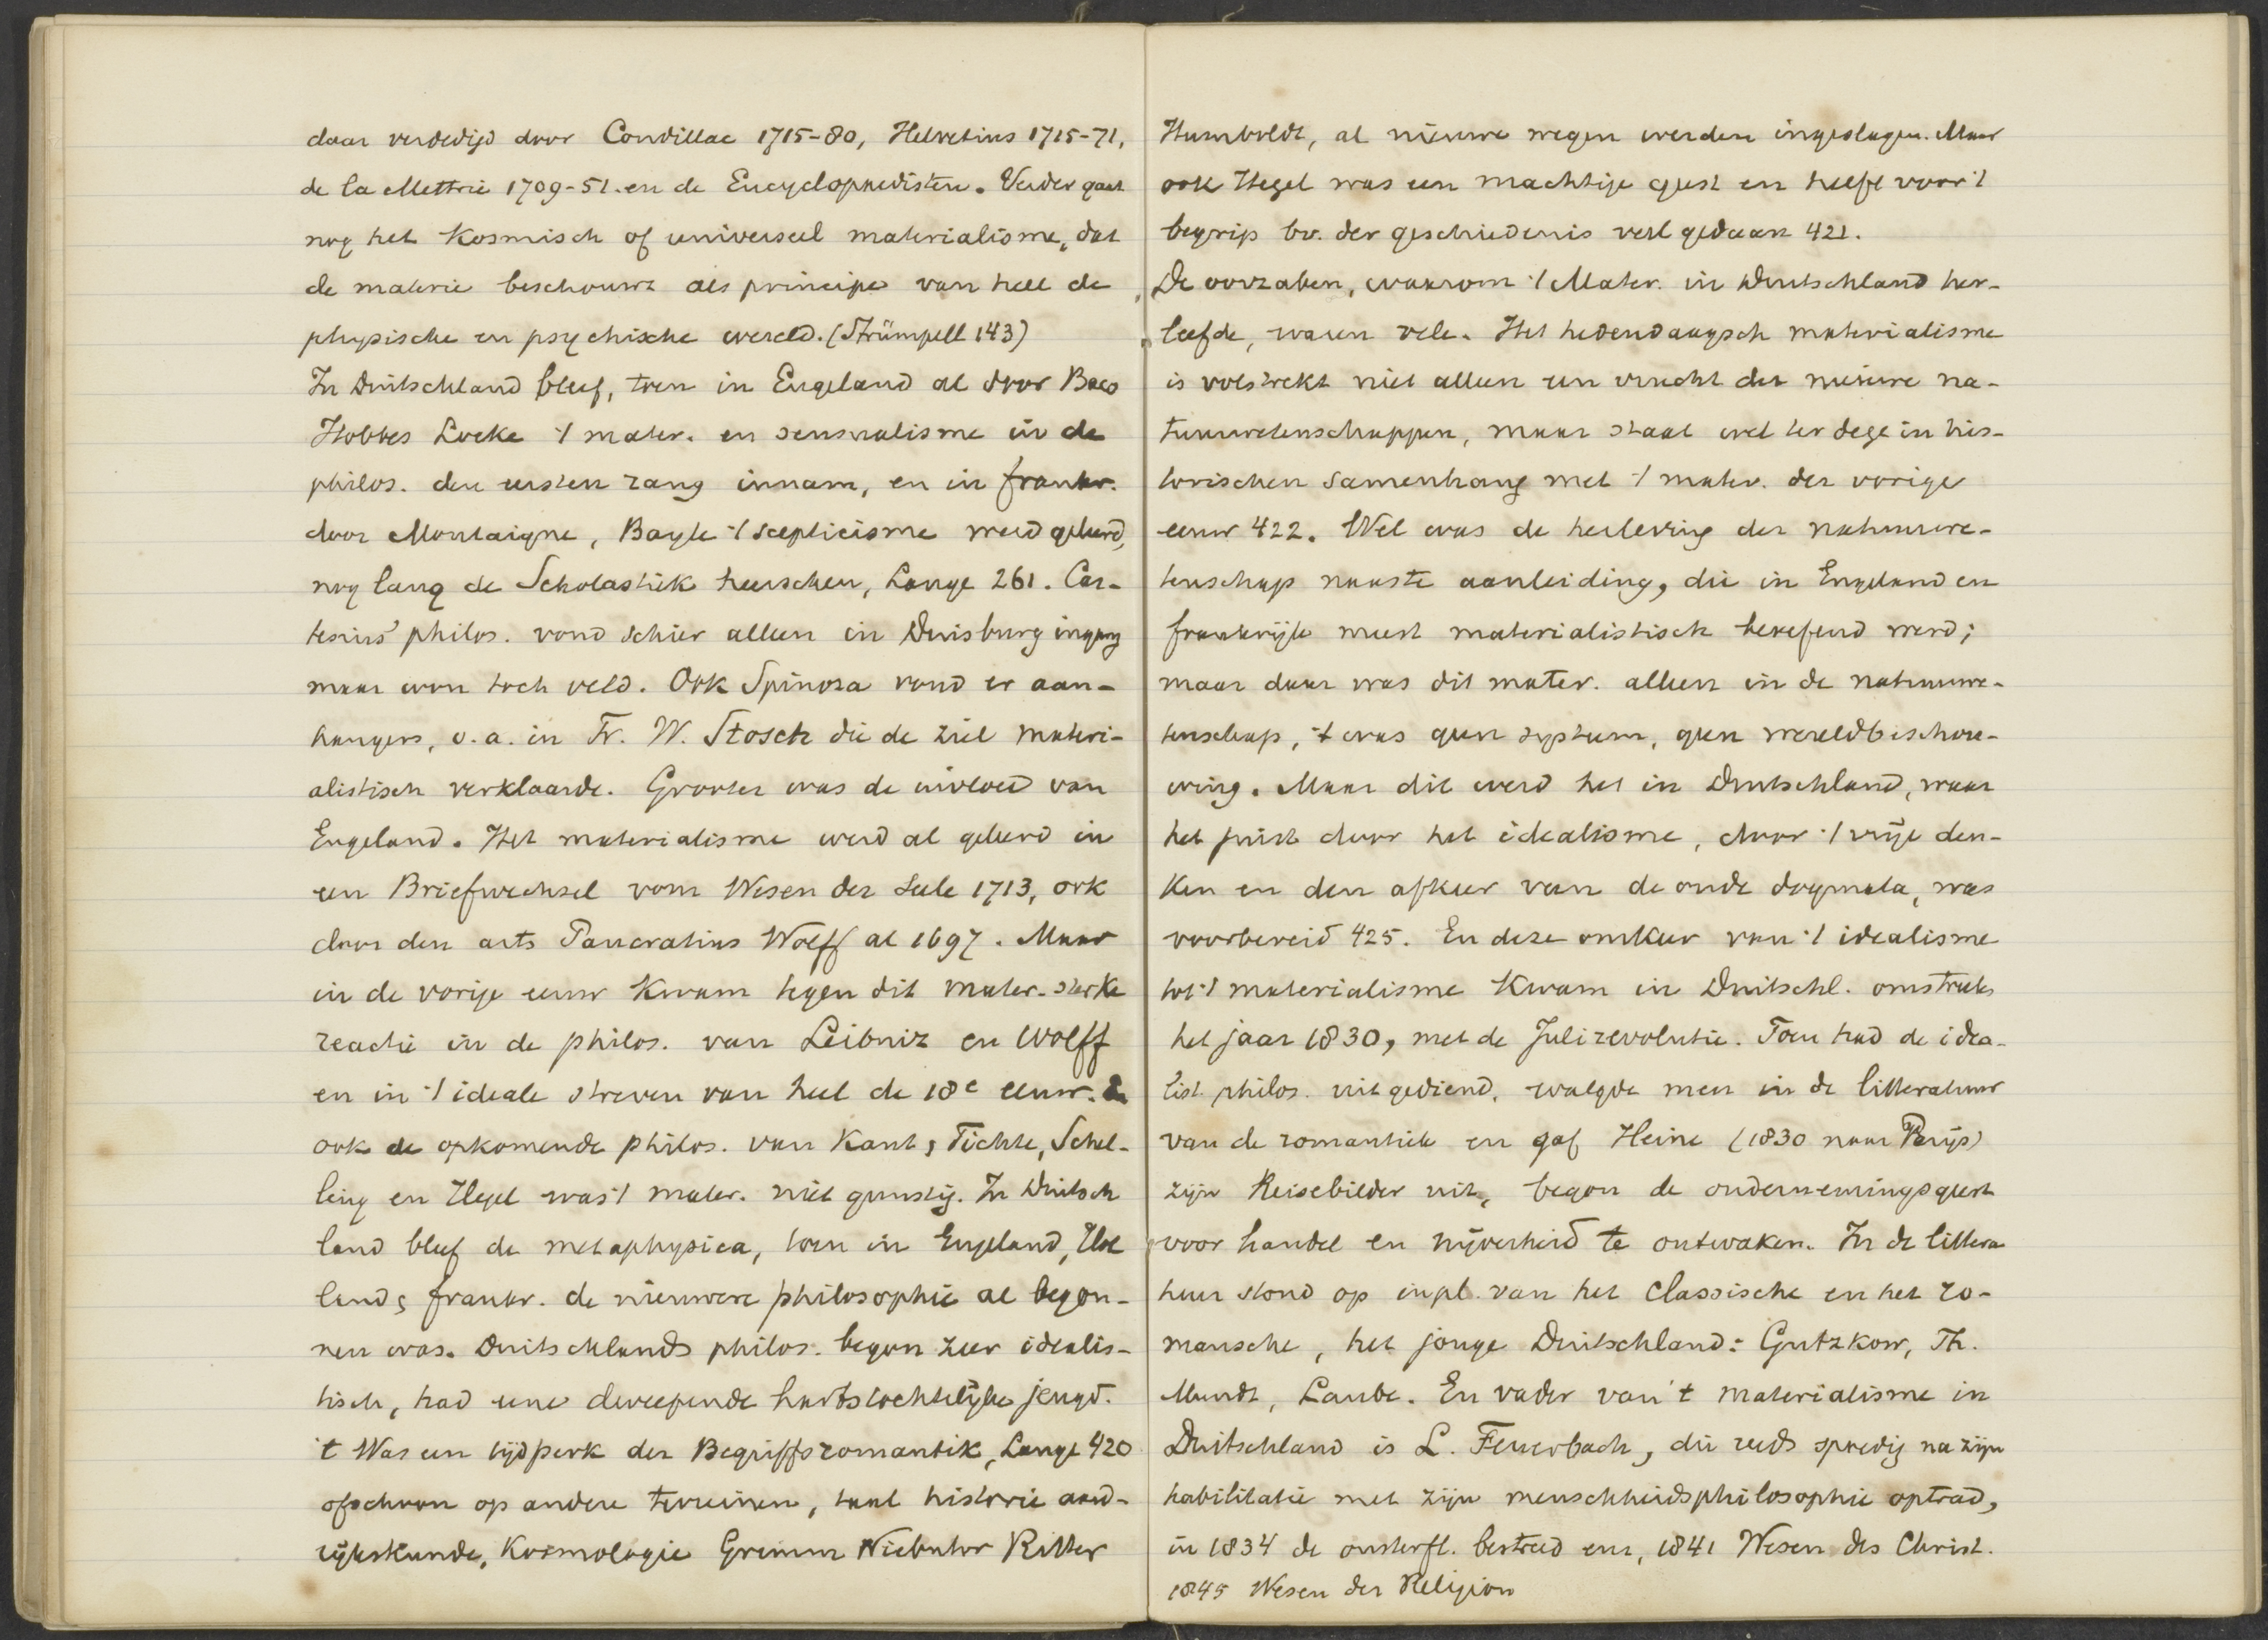 daar verdedigd door Condillac 1715-80, Helvetius 1715-71,
de la Mettrie 1709-51. en de Encyclopaedisten. Verder gaat
nog het kosmisch of universeel materialisme, dat
de materie beschouwt als principe van heel de
physische en psychische wereld. (Strümpell 143)
In Duitschland bleef, toen in Engeland al door Baco
Hobbes Locke 't mater. en sensualisme in de
philos. den eersten rang innam, en in frankr.
door Montaigne, Bayle 't scepticisme werd geleerd,
nog lang de Scholastiek heerschen, Lange 261. Car-
tesius' philos. vond schier alleen in Duisburg ingang
maar won toch veld. Ook Spinoza vond er aan-
hangers, o.a. in Fr. W. Stosch die de ziel materi-
alistisch verklaarde. Grooter was de invloed van
Engeland. Het materialisme werd al geleerd in
een Briefwechsel vom Wesen der Seele 1713, ook
door den arts Pancratius Wolff al 1697. Maar
in de vorige eeuw kwam tegen dit mater. sterke
reactie in de philos. van Leibniz en Wolff
en in 't ideale streven van heel de 18e eeuw. En
ook de opkomende philos. van Kant, Fichte, Schel-
ling en Hegel was 't mater. niet gunstig. In Duitsch
land bleef de metaphysica, toen in Engeland, Hol
land, frankr. de nieuwere philosophie al begon-
nen was. Duitschlands philos. begon zeer idealis-
tisch, had eene dweepende hartstochtelijke jeugd.
't Was een tijdperk der Begriffsromantik, Lange 420
ofschoon op andere terreinen, taal historie aard-
rijkskunde, Kosmologie Grimm Niebuhr Ritter
Humboldt, al nieuwe wegen werden ingeslagen. Maar
ook Hegel was een machtige geest en heeft voor 't
begrip bv. der geschiedenis veel gedaan 421.
De oorzaken, waarom 't Mater. in Duitschland her-
leefde, waren vele. Het hedendaagsch materialisme
is volstrekt niet alleen een vrucht der nieuwe na-
tuurwetenschappen, maar staat wel ter dege in his-
torischen samenhang met 't mater. der vorige
eeuw 422. Wel was de herleving der natuurwe-
tenschap naaste aanleiding, die in Engeland en
frankrijk meest materialistisch beoefend werd;
maar daar was dit mater. alleen in de natuurwe-
tenschap, 't was geen systeem, geen wereldbeschou-
wing. Maar dit werd het in Duitschland, waar
het juist door het idealisme, door 't vrije den-
ken en den afkeer van de oude dogmata, was
voorbereid 425. En deze omkeer van 't idealisme
tot 't materialisme kwam in Duitschl. omstreeks
het jaar 1830, met de Julirevolutie. Toen had de idea-
list. philos. uitgediend, walgde men in de litteratuur
van de romantiek en gaf Heine (1830 naar Parijs)
zijn Reisebilder uit, begon de ondernemingsgeest
voor handel en nijverheid te ontwaken. In de littera
tuur stond op in pl. van het classische en het ro-
mansche, het jonge Duitschland: Gutzkow, Th.
Mundt, Laube. En vader van 't materialisme in
Duitschland is L. Feuerbach, die reeds spoedig na zijn
habilitatie met zijn menschheidsphilosophie optrad,
in 1834 de onsterfl. bestreed en, 1841 Wesen des Christ.
1845 Wesen der Religion